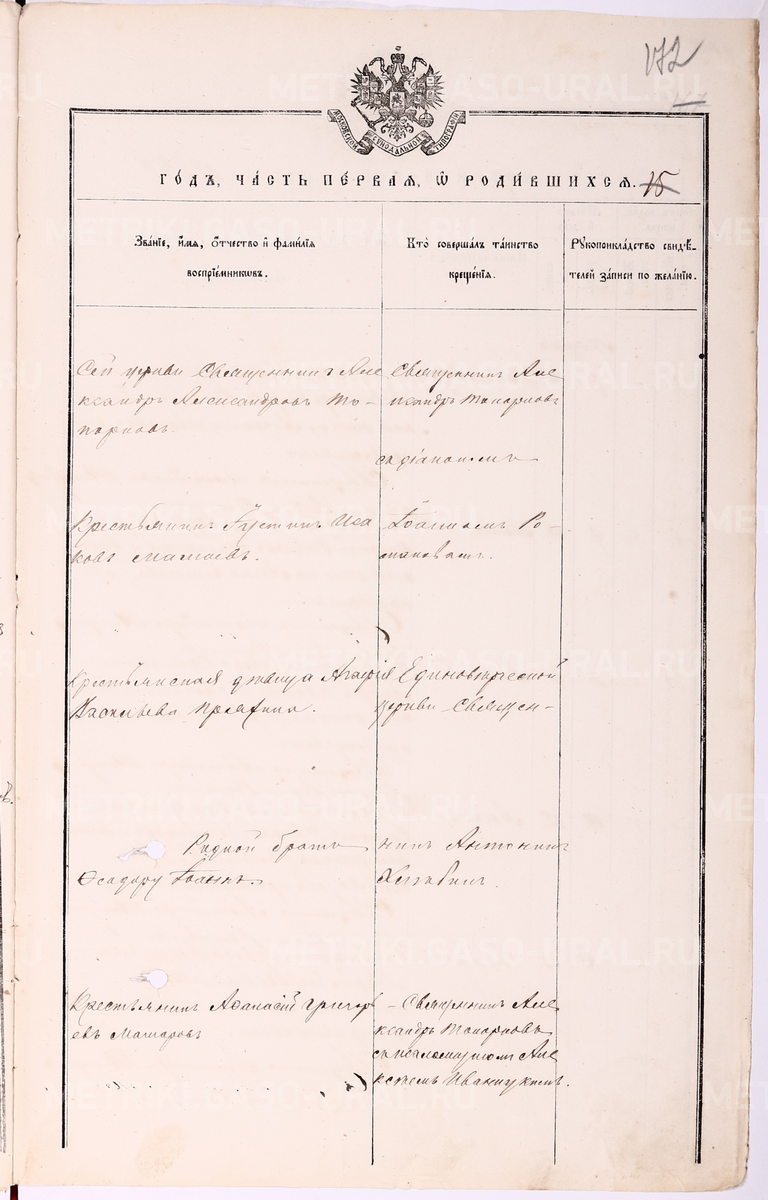 172
МОСКОВСКОЙ СѴНОДАЛЬНОЙ ТИПОГРАФІИ
ГО́ДЪ, ЧА́СТЬ ПЕ́РВАЯ, Ѡ҆ РОДИ́ВШИХСЯ. 15
Зва́нїе, и҆́мя, ѻ҆́тчество и҆ фами́лїя
воспрїе́мникѡвъ.
Кто̀ соверша́лъ та́инство
креще́нїя.
Рꙋкоприкла́дство свидѣ́-
телей за́писи по жела́нїю.
Сей церкви Священникъ Але
ксандръ Александровъ То-
порковъ.
Священникъ Але
ксандръ Топорковъ
съ діакономъ
Крестьянинъ Іустинъ Иса
ковъ
Іоанномъ Ро-
мановымъ.
Крестьянская дѣвица Агафія
Васильева
Единовѣрческой
церкви Священ-
Родной братъ
Ѳеодору Іоаннъ.
никъ Антонинъ
Крестьянинъ Аѳанасій Григорь
евъ
Священникъ Але
ксандръ Топорковъ
съ псаломщикомъ Але
ксѣемъ